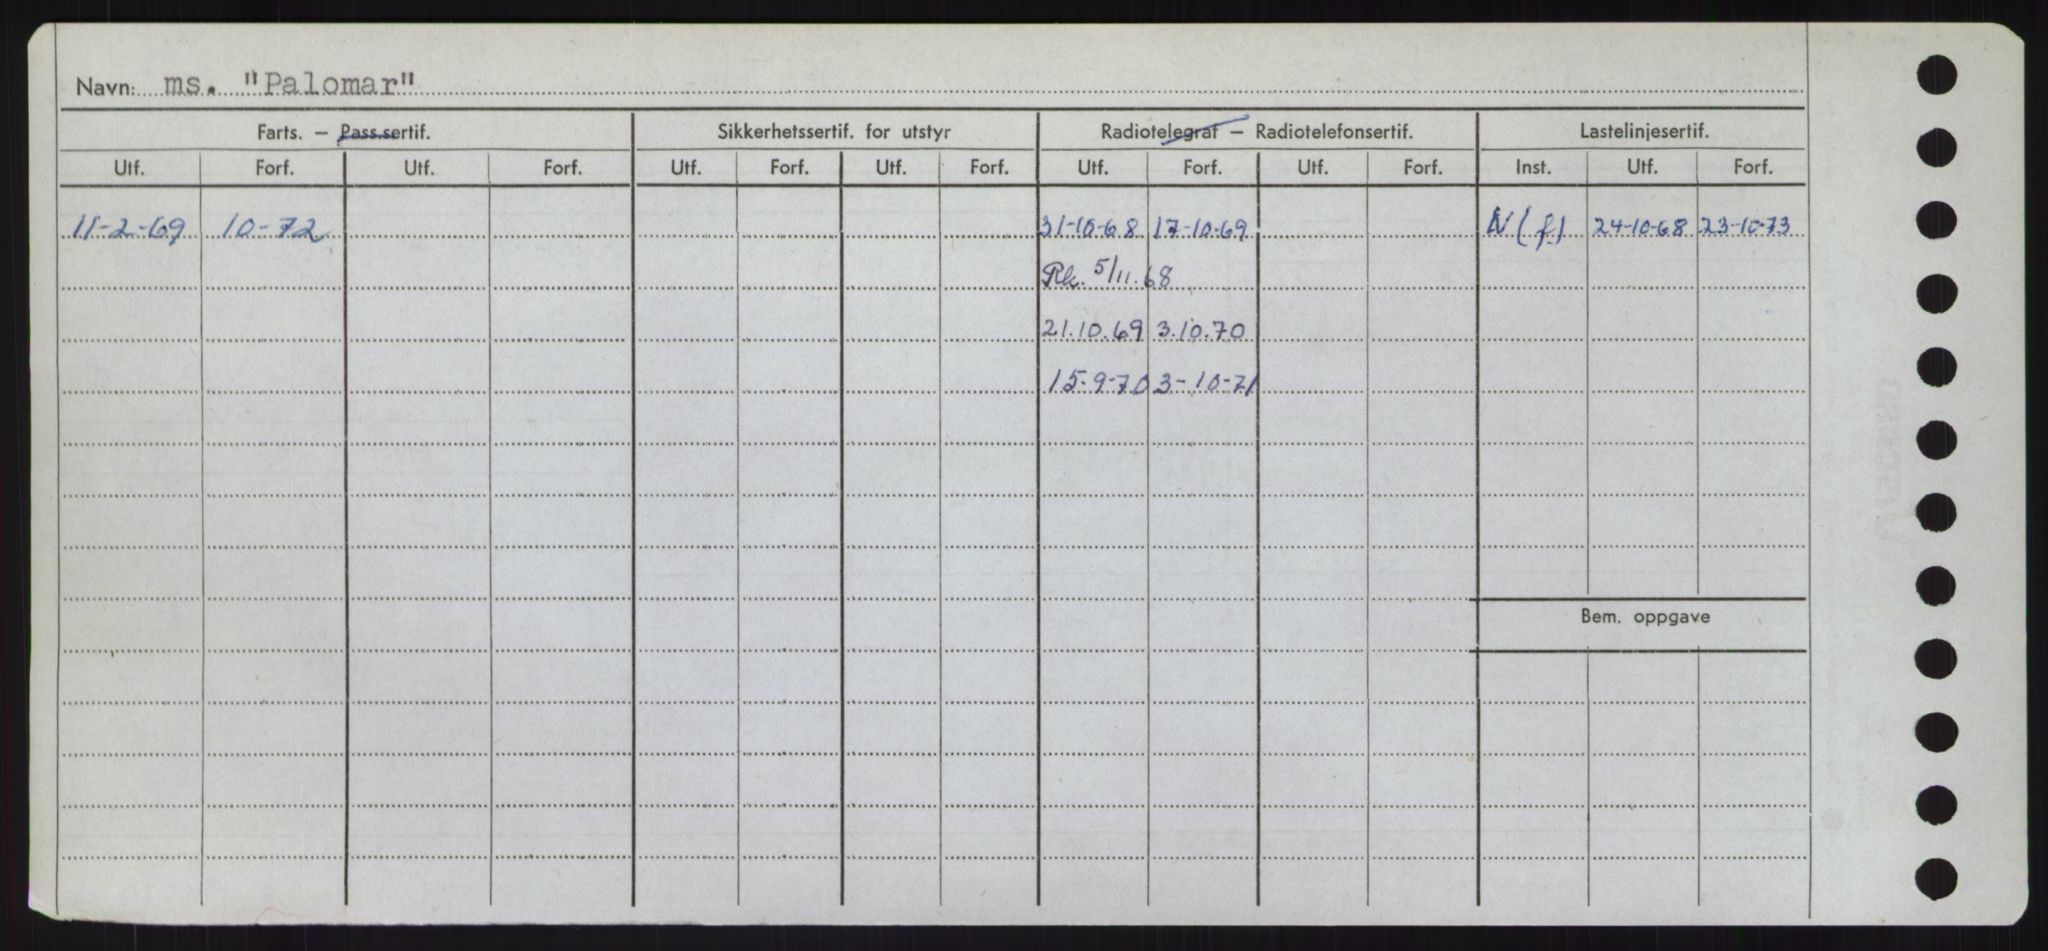 Navn: ms. "Palomar"
Farts. — Pass.sertif. Sikkerhetssertif. for utstyr Radiotelegraf — Radiotelefonsertif. Lastelinjesertif.
Utf. Forf. Utf. Forf. Utf. Forf. Utf. Forf. Utf. Forf. Utf. Forf. Inst. Utf. Forf.
11-2-69 10-72 31-10-68 17-10-69 N (f) 24-10-68 23-10-73
Rk. 5/11.68
21.10.69 3.10.70
15-9-70 3-10-71
Bem. oppgave